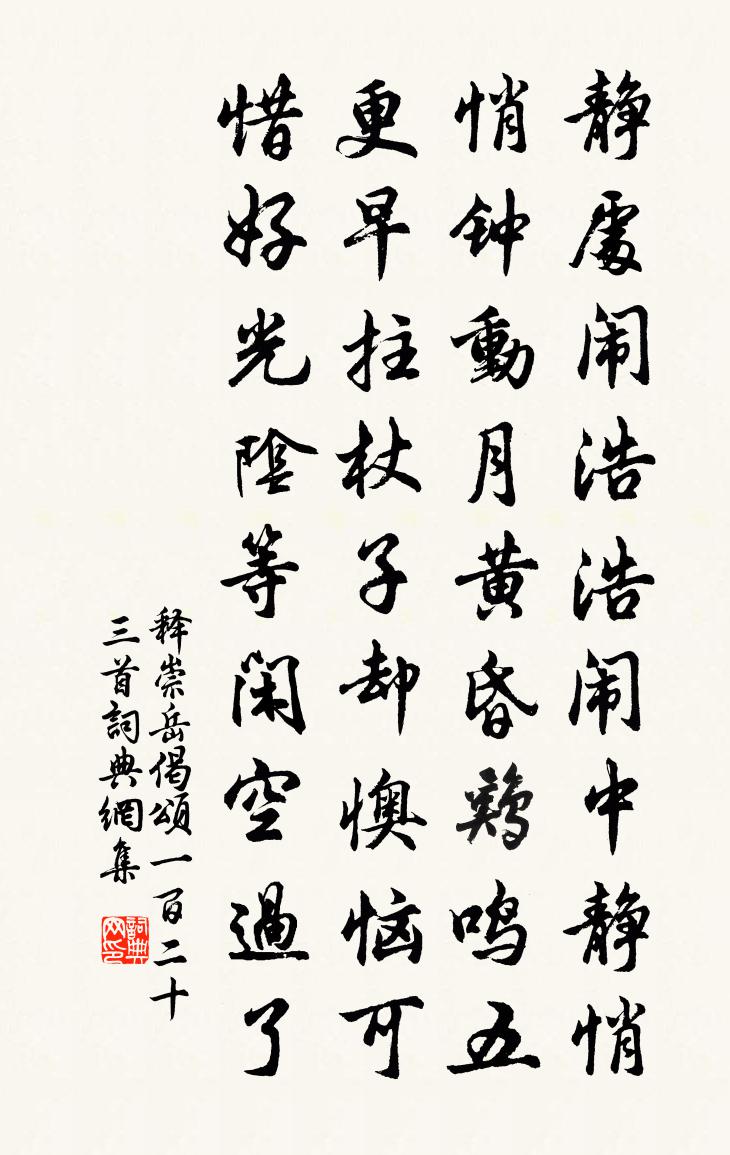 静處闹浩浩闹中静悄
悄钟動月黄昏鷄鸣五
更早拄杖子却懊恼可
惜好光陰等閑空過了
释崇岳偈頌一百二十
三首詞典網集
詞典网印